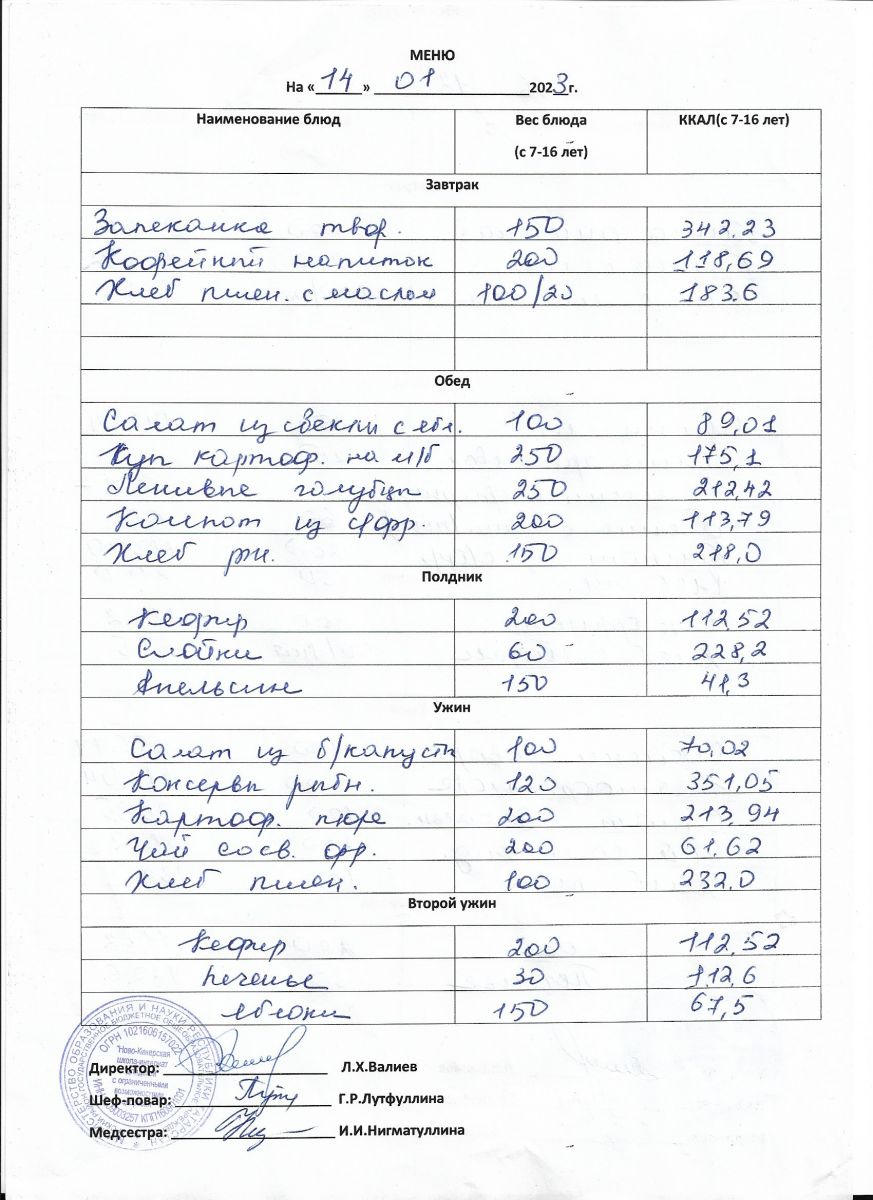 МЕНЮ
На «14» 01 2023г.
Наименование блюд Вес блюда (с 7-16 лет) ККАЛ(с 7-16 лет)
Завтрак
Запеканка твор. 150 342.23
Кофейный напиток 200 118,69
Хлеб пшен. с маслом 100/20 183.6
Обед
Салат из свеклы с ябл. 100 89,01
Суп картоф. на м/б 250 175,1
Ленивые голубцы 250 212,42
Компот из с/фр. 200 113,79
Хлеб рж. 150 218,0
Полдник
Кефир 200 112,52
Слойки 60 228,2
Апельсин 150 41,3
Ужин
Салат из б/капусты 100 70,02
Консервы рыбн. 120 351,05
Картоф. пюре 200 213,94
Чай со св. фр. 200 61,62
Хлеб пшен. 100 232,0
Второй ужин
Кефир 200 112,52
Печенье 30 112,6
Яблоки 150 67,5
ОГРН 1021606157022
"Ново-Кинерская
школа-интернат
с ограниченными
возможностями
Директор: Л.Х.Валиев
Шеф-повар: Г.Р.Лутфуллина
Медсестра: И.И.Нигматуллина